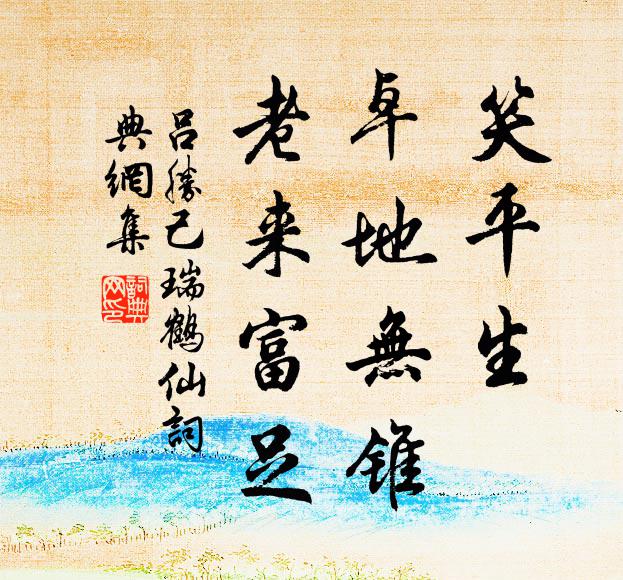 笑平生
卓地無錐
老来富足
呂勝己瑞鶴仙詞
典網集
詞典网印